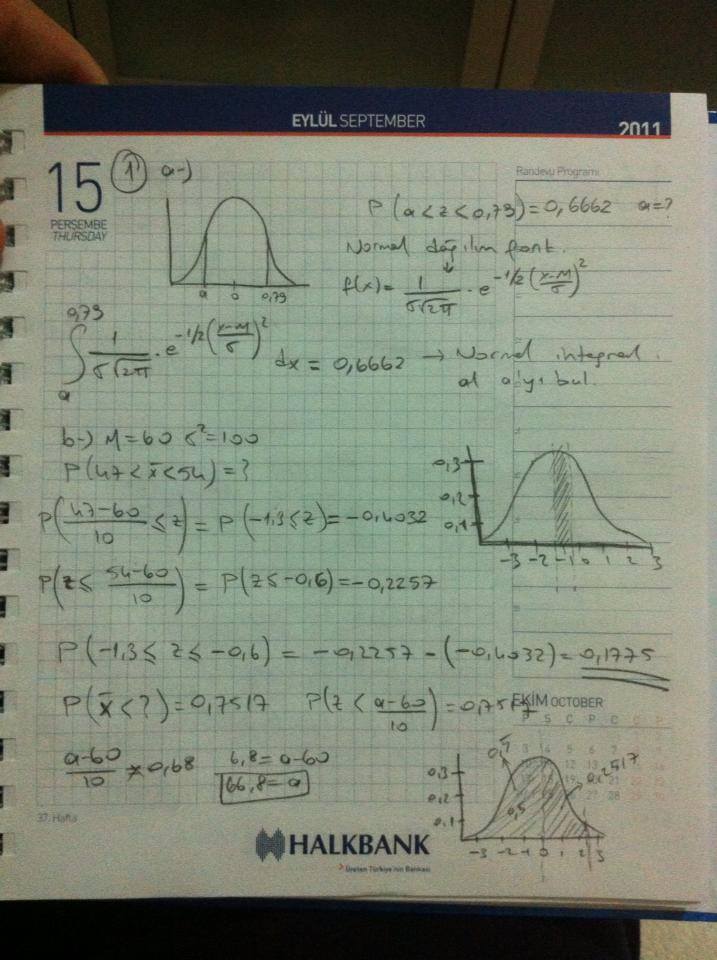 EYLÜL SEPTEMBER
2011
15
PERŞEMBE
THURSDAY
Randevu Programı
1) a-)
a 0 0,79
P(a<z<0,79)=0,6662 a=?
Normal dağılım font.
f(x)= 1/(σ√2π) · e^-1/2((x-M)/σ)^2
∫ a 0,79 1/(σ√2π) · e^-1/2((x-M)/σ)^2 dx = 0,6662 → Normal integral
al a'yı bul.
b-) M=60 σ²=100
P(47<x̄<54)=?
P((47-60)/10 ≤ z) = P(-1,3≤z)=-0,4032
0,3
0,2
0,1
-3 -2 -1 0 1 2 3
P(z≤ (54-60)/10) = P(z≤-0,6)=-0,2257
P(-1,3≤ z ≤ -0,6) = -0,2257-(-0,4032)=0,1775
P(x̄<?)=0,7517 P(z< (a-60)/10)=0,7517
EKİM OCTOBER
(a-60)/10 = 0,68 6,8=a-60
66,8=a
0,3
0,2
0,1
0,5
0,2517
-3 -2 -1 0 1 2 3
37. Hafta
HALKBANK
Üreten Türkiye'nin Bankası